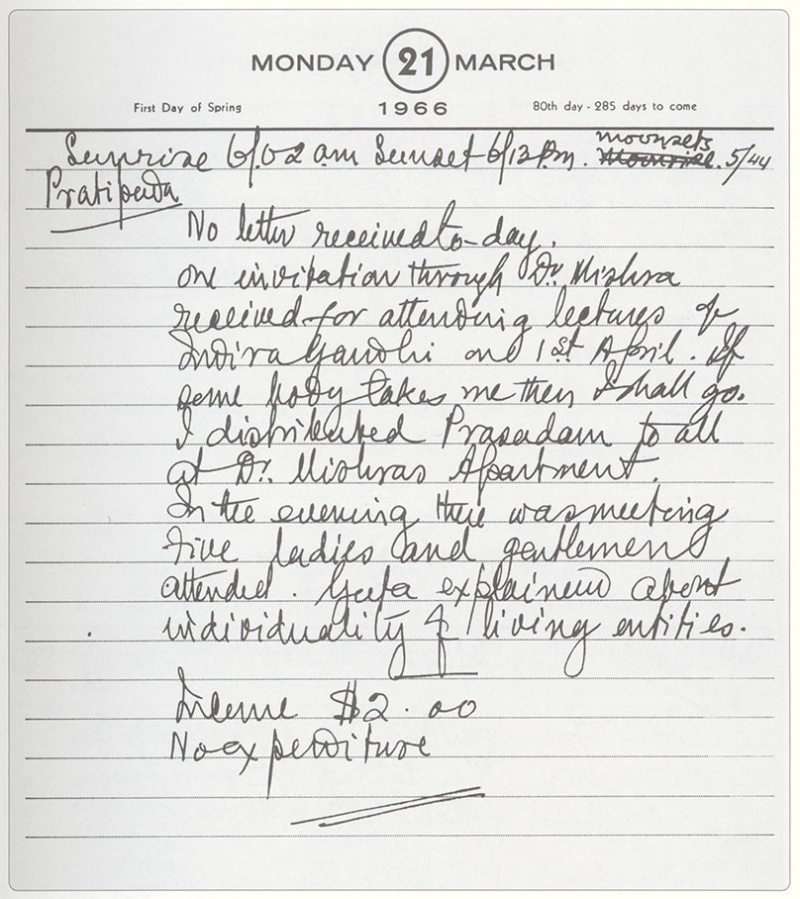 MONDAY 21 MARCH
First Day of Spring 1966 80th day - 285 days to come
moonsets
Sunrise 6/02 am Sunset 6/13 Pm. Moonrise. 5/44
Pratipada
No letter received to-day.
one invitation through Dr. Mishra
received for attending lectures of
Indira Gandhi on 1st April. If
some body takes me then I shall go.
I distributed Prasadam to all
at Dr. Mishras Apartment.
In the evening there was meeting
five ladies and gentlemen
attended. Geeta explained about
individuality of living entities.
Income $2.00
No expenditure